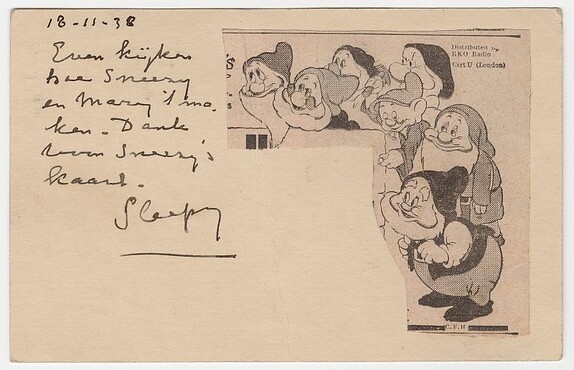 18-11-38
Even kijken
hoe Sneezy
en Mary 't ma-
ken. Dank
voor Sneezy's
kaart.
Sleepy
Distributed by
RKO Radio
Cert U (London)
'S
C.F.H